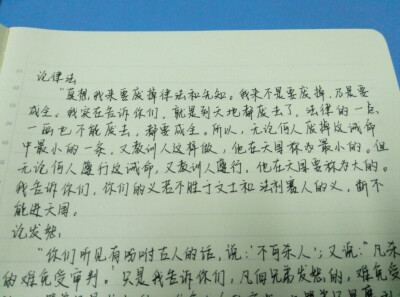 论律法
"莫想我来要废掉律法和先知。我来不是要废掉,乃是要
成全。我实在告诉你们,就是到天地都废去了,法律的一点
一画也不能废去,都要成全。所以,无论何人废掉这诫命
中最小的一条,又教训人这样做,他在天国称为最小的。但
无论何人遵行这诫命,又教训人遵行,他在天国要称为大的。
我告诉你们,你们的义若不胜于文士和法利赛人的义,断不
能进天国。
论发怒:
"你们听见有吩咐古人的话,说:'不可杀人';又说:"凡杀
的难免受审判。'只是我告诉你们,凡向兄弟发怒的,难免受